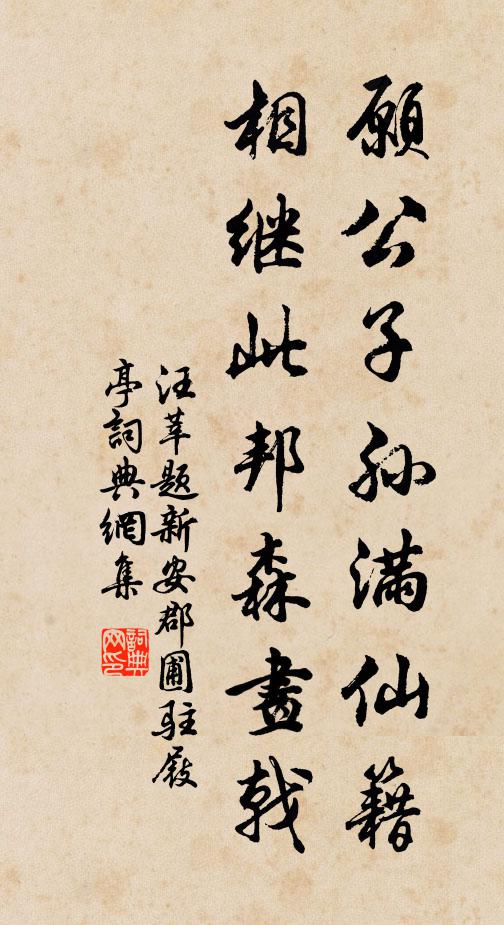 願公子孙满仙籍
相继此邦森畫戟
汪莘题新安郡圃驻屐
亭詞典網集
詞典网印